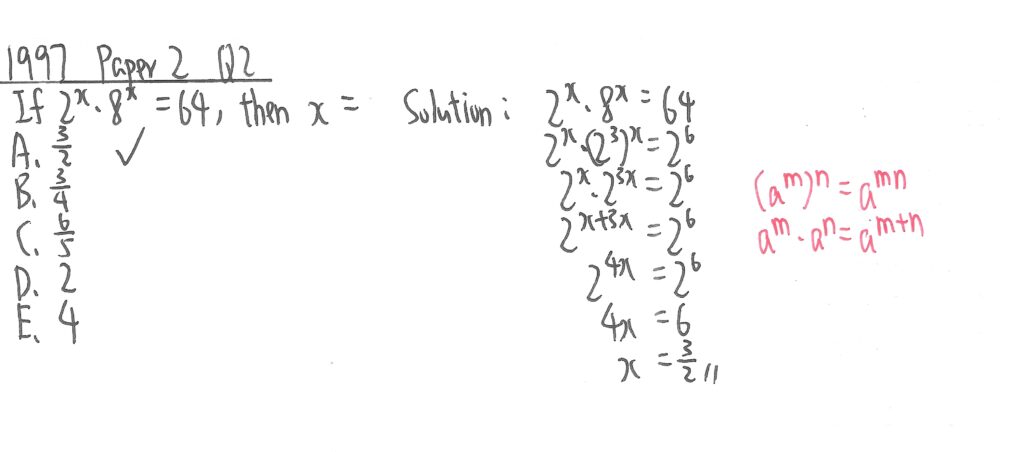 1997 Paper 2 Q2
If 2^x · 8^x = 64, then x =
A. 3/2 ✓
B. 3/4
C. 6/5
D. 2
E. 4
Solution : 2^x · 8^x = 64
2^x · (2^3)^x = 2^6
2^x · 2^3x = 2^6
2^x+3x = 2^6
2^4x = 2^6
4x = 6
x = 3/2 //
(a^m)^n = a^mn
a^m · a^n = a^m+n